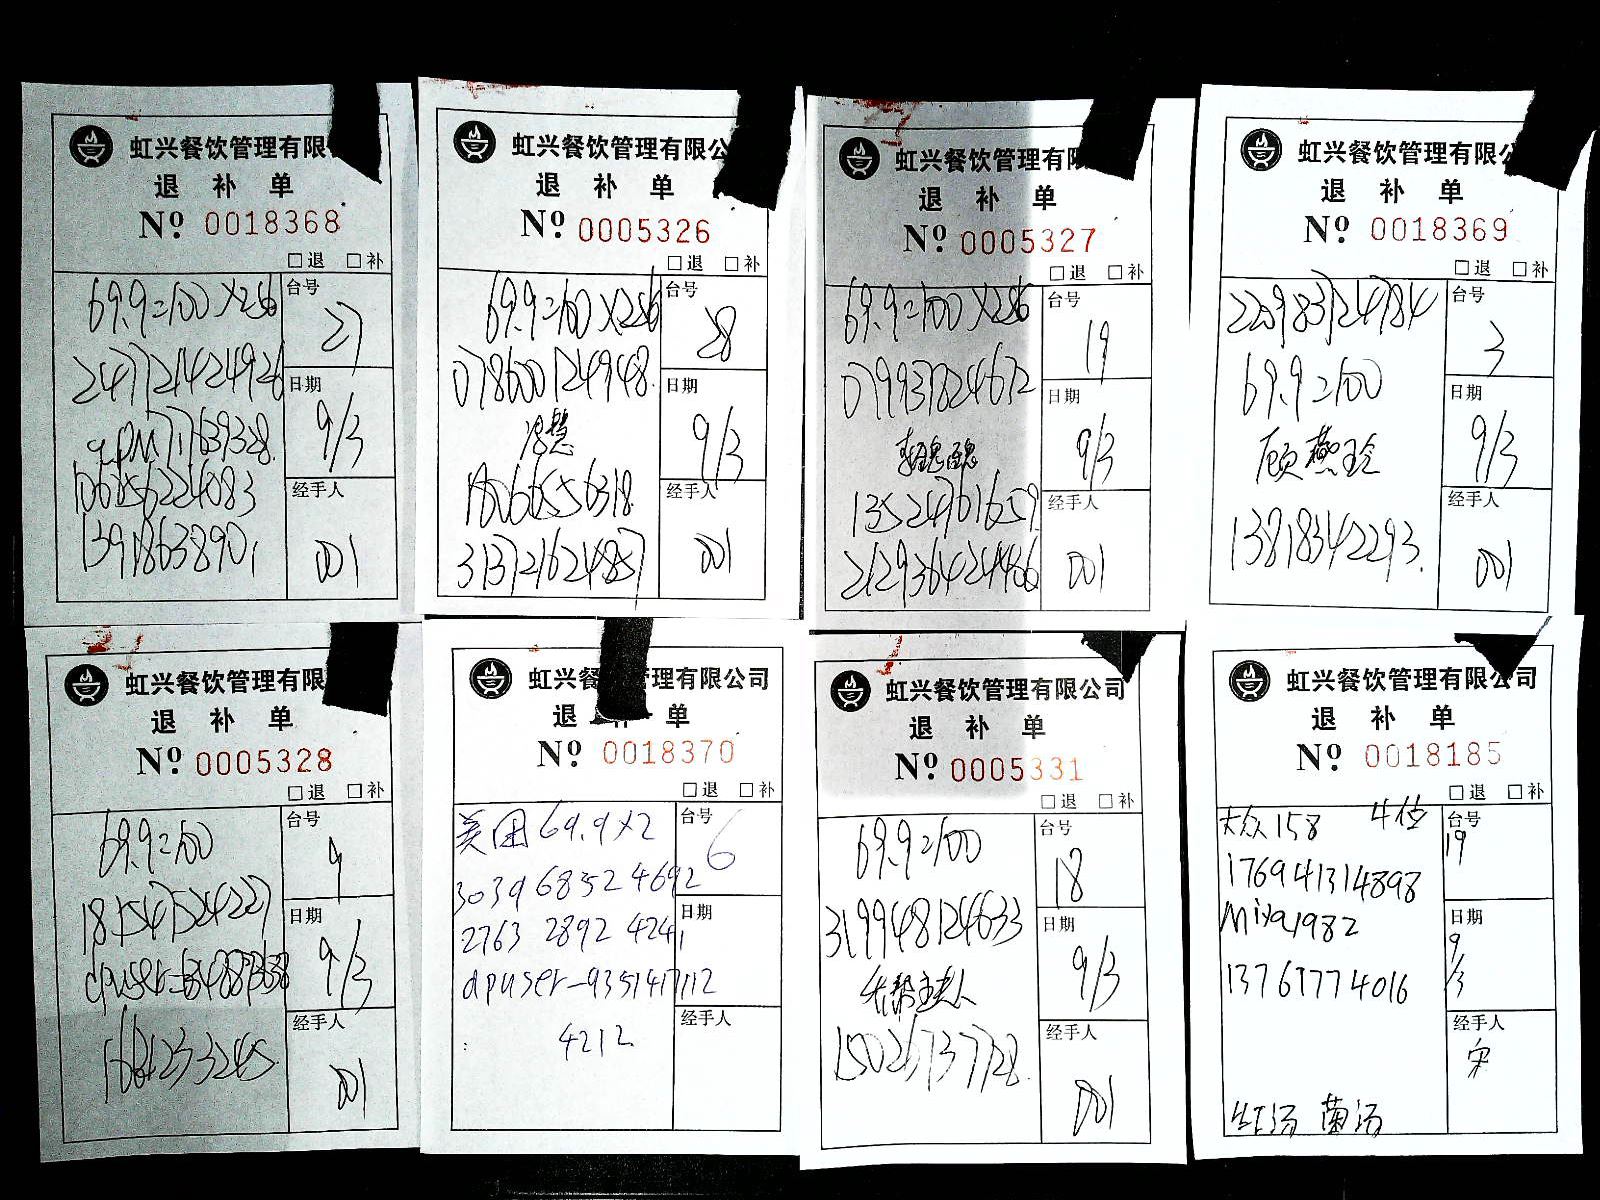 虹兴餐饮管理有限
退 补 单
Nº 0018368
□退 □补
69.9=100 X2张
台号
27
247721424926
日期
9/3
106256224083
经手人
13918638901
001
虹兴餐饮管理有限公
退 补 单
Nº 0005326
□退 □补
69.9=100 X2张
台号
28
078600124948
日期
9/3
18066556318
经手人
313721624857
001
虹兴餐饮管理有限
退 补 单
Nº 0005327
□退 □补
69.9=100 X2张
台号
19
079937824672
日期
9/3
13524761659
经手人
212936424466
001
虹兴餐饮管理有限公
退 补 单
Nº 0018369
□退 □补
228983724784
台号
3
69.9=100
日期
9/3
顾燕玲
经手人
13818342293
001
虹兴餐饮管理有限
退 补 单
Nº 0005328
□退 □补
69.9=100
台号
9
181547524227
日期
9/3
经手人
001
虹兴餐 管理有限公司
退 单
Nº 0018370
□退 □补
美团69.9X2
台号
6
303968524692
日期
2763 2892 4241
dpuser-9351417112
经手人
4212
虹兴餐饮管理有限公司
退 补 单
Nº 0005331
□退 □补
69.9=100
台号
18
319948124633
日期
9/3
15026737728
经手人
001
虹兴餐饮管理有限公司
退 补 单
Nº 0018185
□退 □补
大众158 4位
台号
19
176941314898
日期
9/3
Miya1982
13761774016
经手人
宋
红汤 菌汤